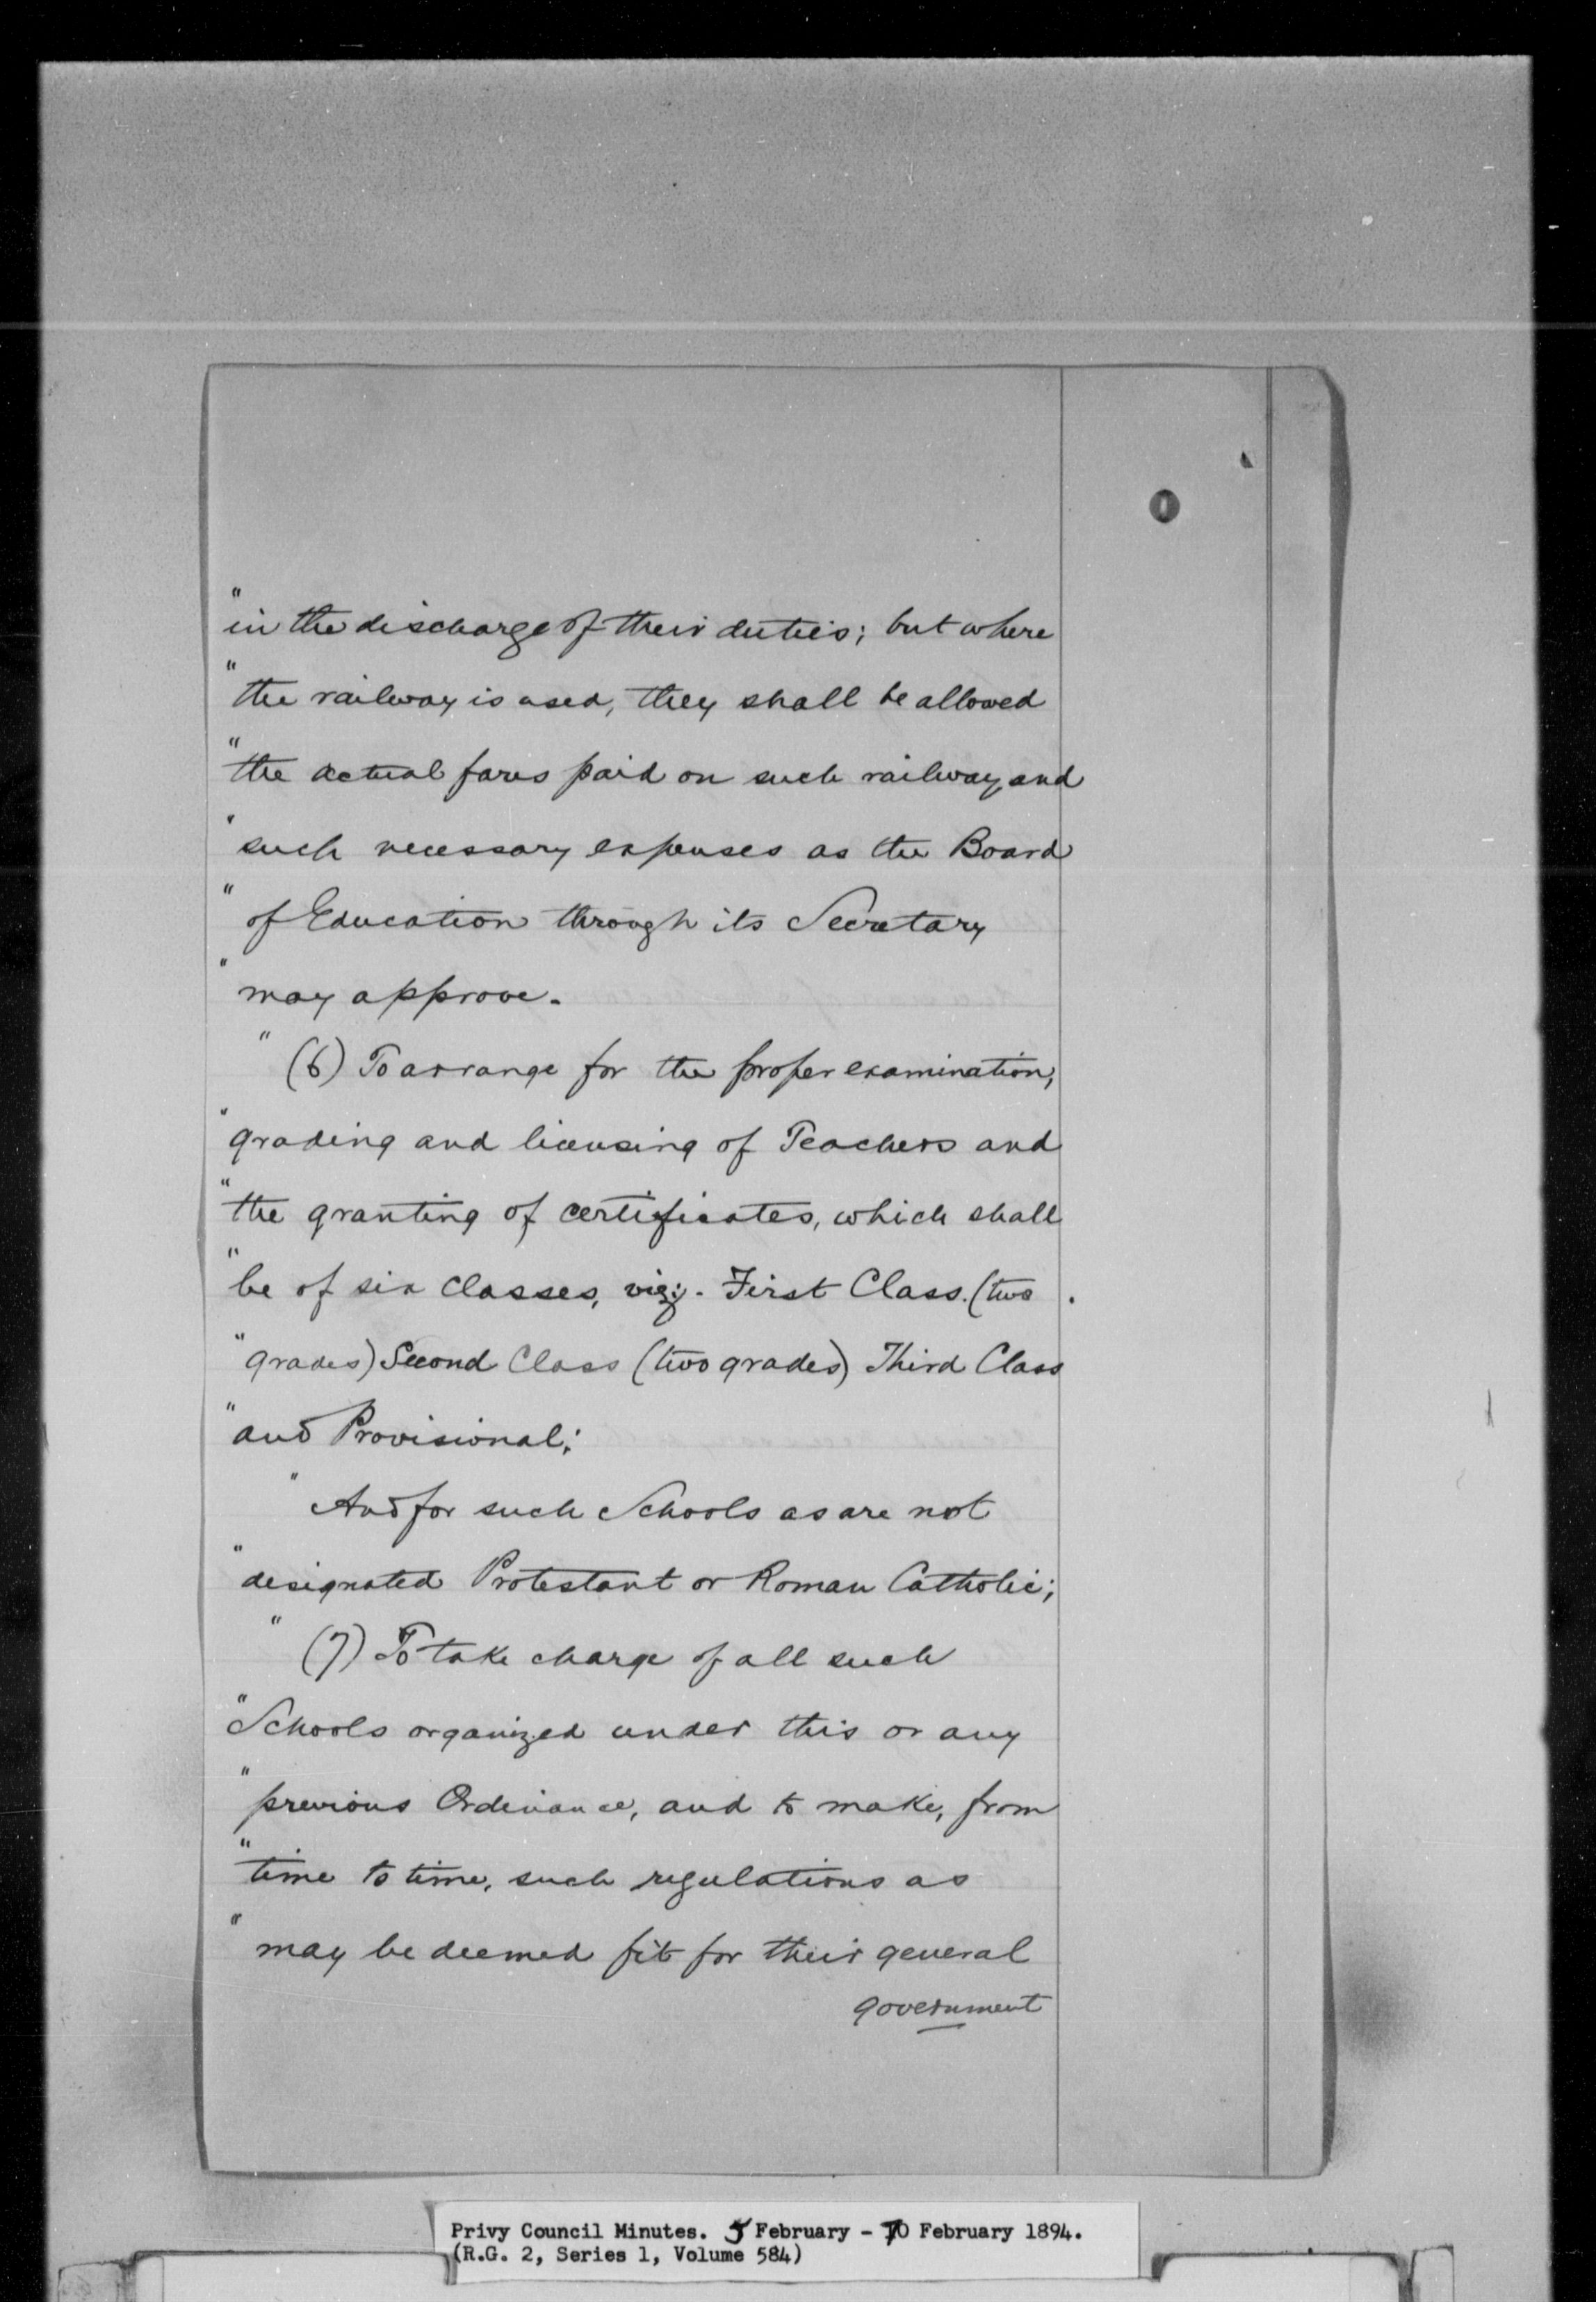 "in the discharge of their duties; but where
"the railway is used, they shall be allowed
"the actual fares paid on such railway, and
"such necessary expenses as the Board
"of Education through its Secretary
"may approve.
"(6) To arrange for the proper examination,
"grading and licensing of Teachers and
"the granting of certificates, which shall
"be of six classes, viz:- First Class. (two
"grades) Second Class (two grades) Third Class
"and Provisional;
"And for such Schools as are not
"designated Protestant or Roman Catholic;
"(7) To take charge of all such
"Schools organized under this or any
"previous Ordinance, and to make, from
"time to time, such regulations as
"may be deemed fit for their general
government
Privy Council Minutes. 5 February - 10 February 1894.
(R.G. 2, Series 1, Volume 584)